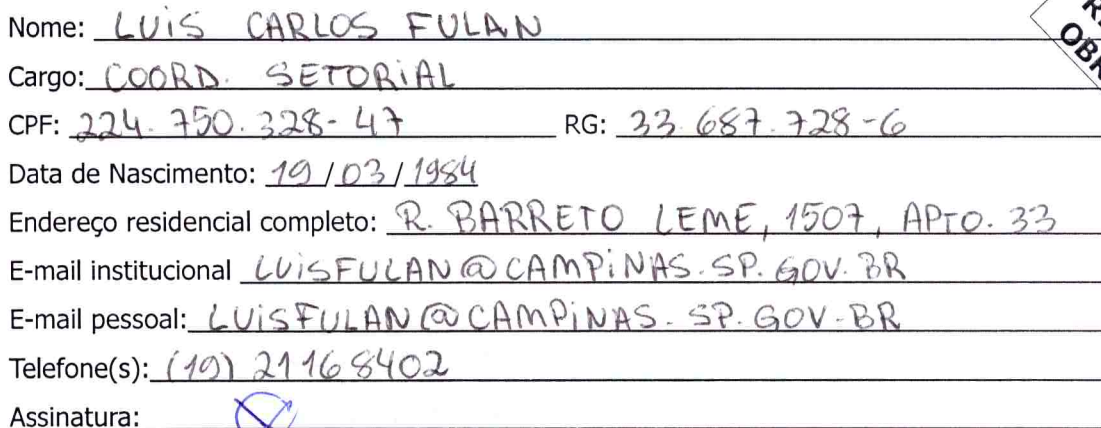 Nome: LUIS CARLOS FULAN
Cargo: COORD. SETORIAL
CPF: 224.750.328-47 RG: 33.687.728-6
Data de Nascimento: 19/03/1984
Endereço residencial completo: R. BARRETO LEME, 1507, APTO. 33
E-mail institucional LUISFULAN@CAMPINAS.SP.GOV.BR
E-mail pessoal: LUISFULAN@CAMPINAS.SP.GOV.BR
Telefone(s): (19) 21168402
Assinatura: